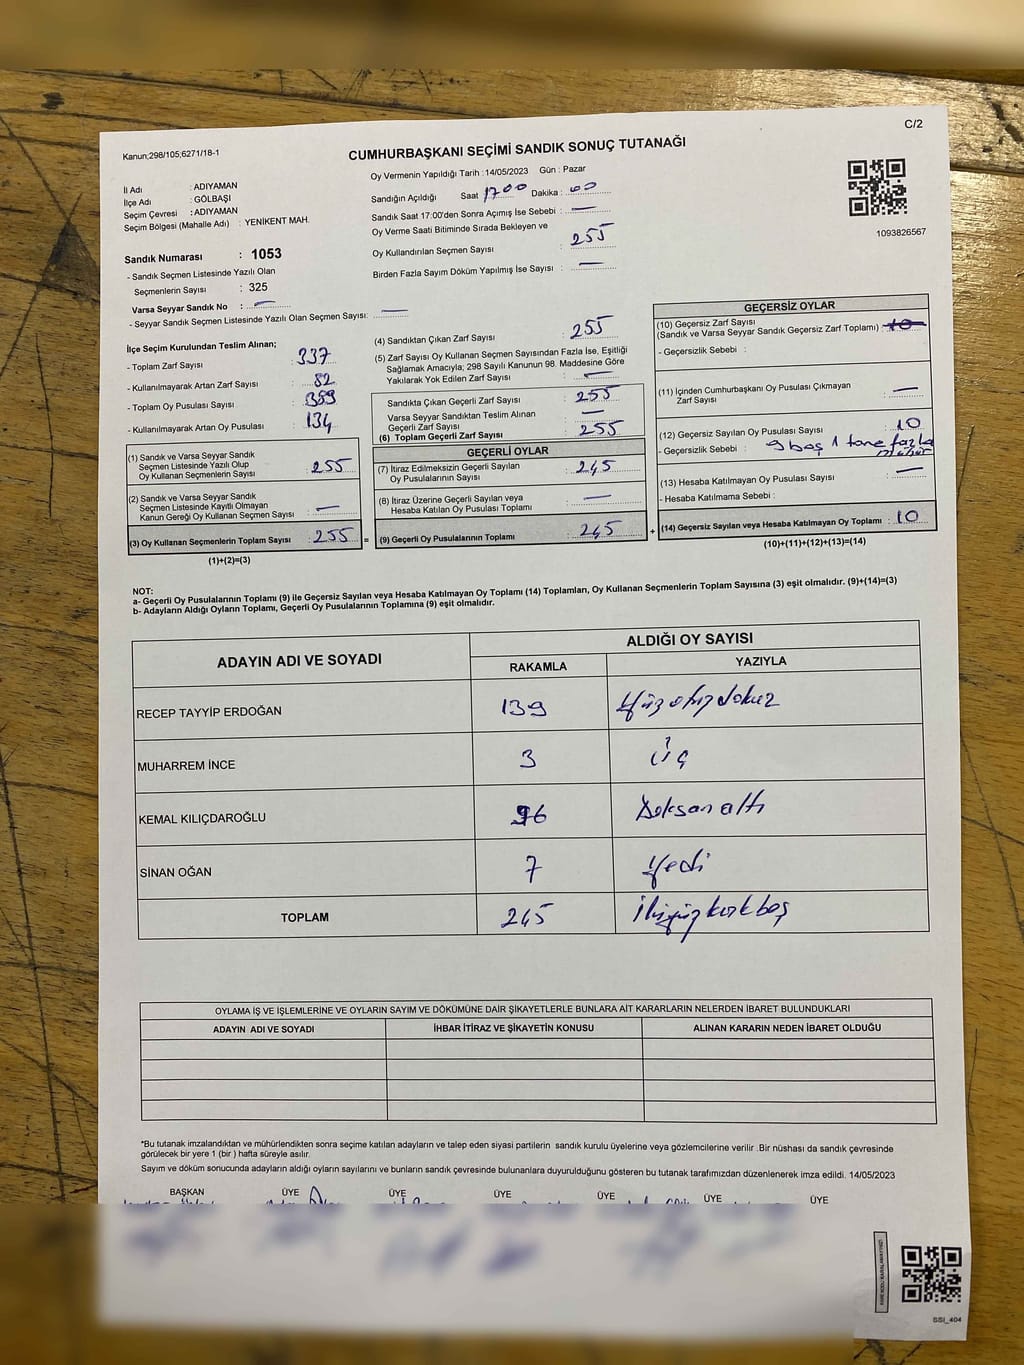 C/2
Kanun;298/105;6271/18-1
CUMHURBAŞKANI SEÇİMİ SANDIK SONUÇ TUTANAĞI
Oy Vermenin Yapıldığı Tarih :14/05/2023 Gün : Pazar
İl Adı : ADIYAMAN
İlçe Adı : GÖLBAŞI
Seçim Çevresi : ADIYAMAN
Seçim Bölgesi (Mahalle Adı) : YENİKENT MAH.
Sandığın Açıldığı Saat 1700 Dakika : 00
Sandık Saat 17:00'den Sonra Açımış İse Sebebi : —
Oy Verme Saati Bitiminde Sırada Bekleyen ve
Oy Kullandırılan Seçmen Sayısı : 255
Birden Fazla Sayım Döküm Yapılmış İse Sayısı : —
1093826567
Sandık Numarası : 1053
- Sandık Seçmen Listesinde Yazılı Olan
Seçmenlerin Sayısı : 325
Varsa Seyyar Sandık No : —
- Seyyar Sandık Seçmen Listesinde Yazılı Olan Seçmen Sayısı: —
İlçe Seçim Kurulundan Teslim Alınan;
- Toplam Zarf Sayısı : 337
- Kullanılmayarak Artan Zarf Sayısı : 82
- Toplam Oy Pusulası Sayısı :
- Kullanılmayarak Artan Oy Pusulası : 134
(1) Sandık ve Varsa Seyyar Sandık
Seçmen Listesinde Yazılı Olup
Oy Kullanan Seçmenlerin Sayısı : 255
(2) Sandık ve Varsa Seyyar Sandık
Seçmen Listesinde Kayıtlı Olmayan
Kanun Gereği Oy Kullanan Seçmen Sayısı : —
(3) Oy Kullanan Seçmenlerin Toplam Sayısı : 255 =
(1)+(2)=(3)
(4) Sandıktan Çıkan Zarf Sayısı : 255
(5) Zarf Sayısı Oy Kullanan Seçmen Sayısından Fazla İse, Eşitliği
Sağlamak Amacıyla; 298 Sayılı Kanunun 98. Maddesine Göre
Yakılarak Yok Edilen Zarf Sayısı : —
Sandıkta Çıkan Geçerli Zarf Sayısı : 255
Varsa Seyyar Sandıktan Teslim Alınan
Geçerli Zarf Sayısı : —
(6) Toplam Geçerli Zarf Sayısı : 255
GEÇERLİ OYLAR
(7) İtiraz Edilmeksizin Geçerli Sayılan
Oy Pusulalarının Sayısı : 245
(8) İtiraz Üzerine Geçerli Sayılan veya
Hesaba Katılan Oy Pusulası Toplamı : —
(9) Geçerli Oy Pusulalarının Toplamı : 245 +
GEÇERSİZ OYLAR
(10) Geçersiz Zarf Sayısı
(Sandık ve Varsa Seyyar Sandık Geçersiz Zarf Toplamı) : 10
- Geçersizlik Sebebi :
(11) İçinden Cumhurbaşkanı Oy Pusulası Çıkmayan
Zarf Sayısı : —
(12) Geçersiz Sayılan Oy Pusulası Sayısı : 10
- Geçersizlik Sebebi : 9 boş 1 tane fazla
mühür
(13) Hesaba Katılmayan Oy Pusulası Sayısı : —
- Hesaba Katılmama Sebebi :
(14) Geçersiz Sayılan veya Hesaba Katılmayan Oy Toplamı : 10
(10)+(11)+(12)+(13)=(14)
NOT:
a- Geçerli Oy Pusulalarının Toplamı (9) ile Geçersiz Sayılan veya Hesaba Katılmayan Oy Toplamı (14) Toplamları, Oy Kullanan Seçmenlerin Toplam Sayısına (3) eşit olmalıdır. (9)+(14)=(3)
b- Adayların Aldığı Oyların Toplamı, Geçerli Oy Pusulalarının Toplamına (9) eşit olmalıdır.
ADAYIN ADI VE SOYADI ALDIĞI OY SAYISI
RAKAMLA YAZIYLA
RECEP TAYYİP ERDOĞAN 139 Yüzotuzdokuz
MUHARREM İNCE 3 Üç
KEMAL KILIÇDAROĞLU 96 Doksan altı
SİNAN OĞAN 7 Yedi
TOPLAM 245 İkiyüzkırkbeş
OYLAMA İŞ VE İŞLEMLERİNE VE OYLARIN SAYIM VE DÖKÜMÜNE DAİR ŞİKAYETLERLE BUNLARA AİT KARARLARIN NELERDEN İBARET BULUNDUKLARI
ADAYIN ADI VE SOYADI İHBAR İTİRAZ VE ŞİKAYETİN KONUSU ALINAN KARARIN NEDEN İBARET OLDUĞU
*Bu tutanak imzalandıktan ve mühürlendikten sonra seçime katılan adayların ve talep eden siyasi partilerin sandık kurulu üyelerine veya gözlemcilerine verilir .Bir nüshası da sandık çevresinde
görülecek bir yere 1 (bir ) hafta süreyle asılır.
Sayım ve döküm sonucunda adayların aldığı oyların sayılarını ve bunların sandık çevresinde bulunanlara duyurulduğunu gösteren bu tutanak tarafımızdan düzenlenerek imza edildi. 14/05/2023
BAŞKAN ÜYE ÜYE ÜYE ÜYE ÜYE ÜYE
SSI_404